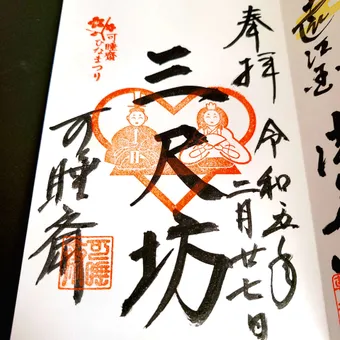 奉拝
令和五年
二月廿七日
三尺坊
可睡齋
可睡齋
ひなまつり
遠江国